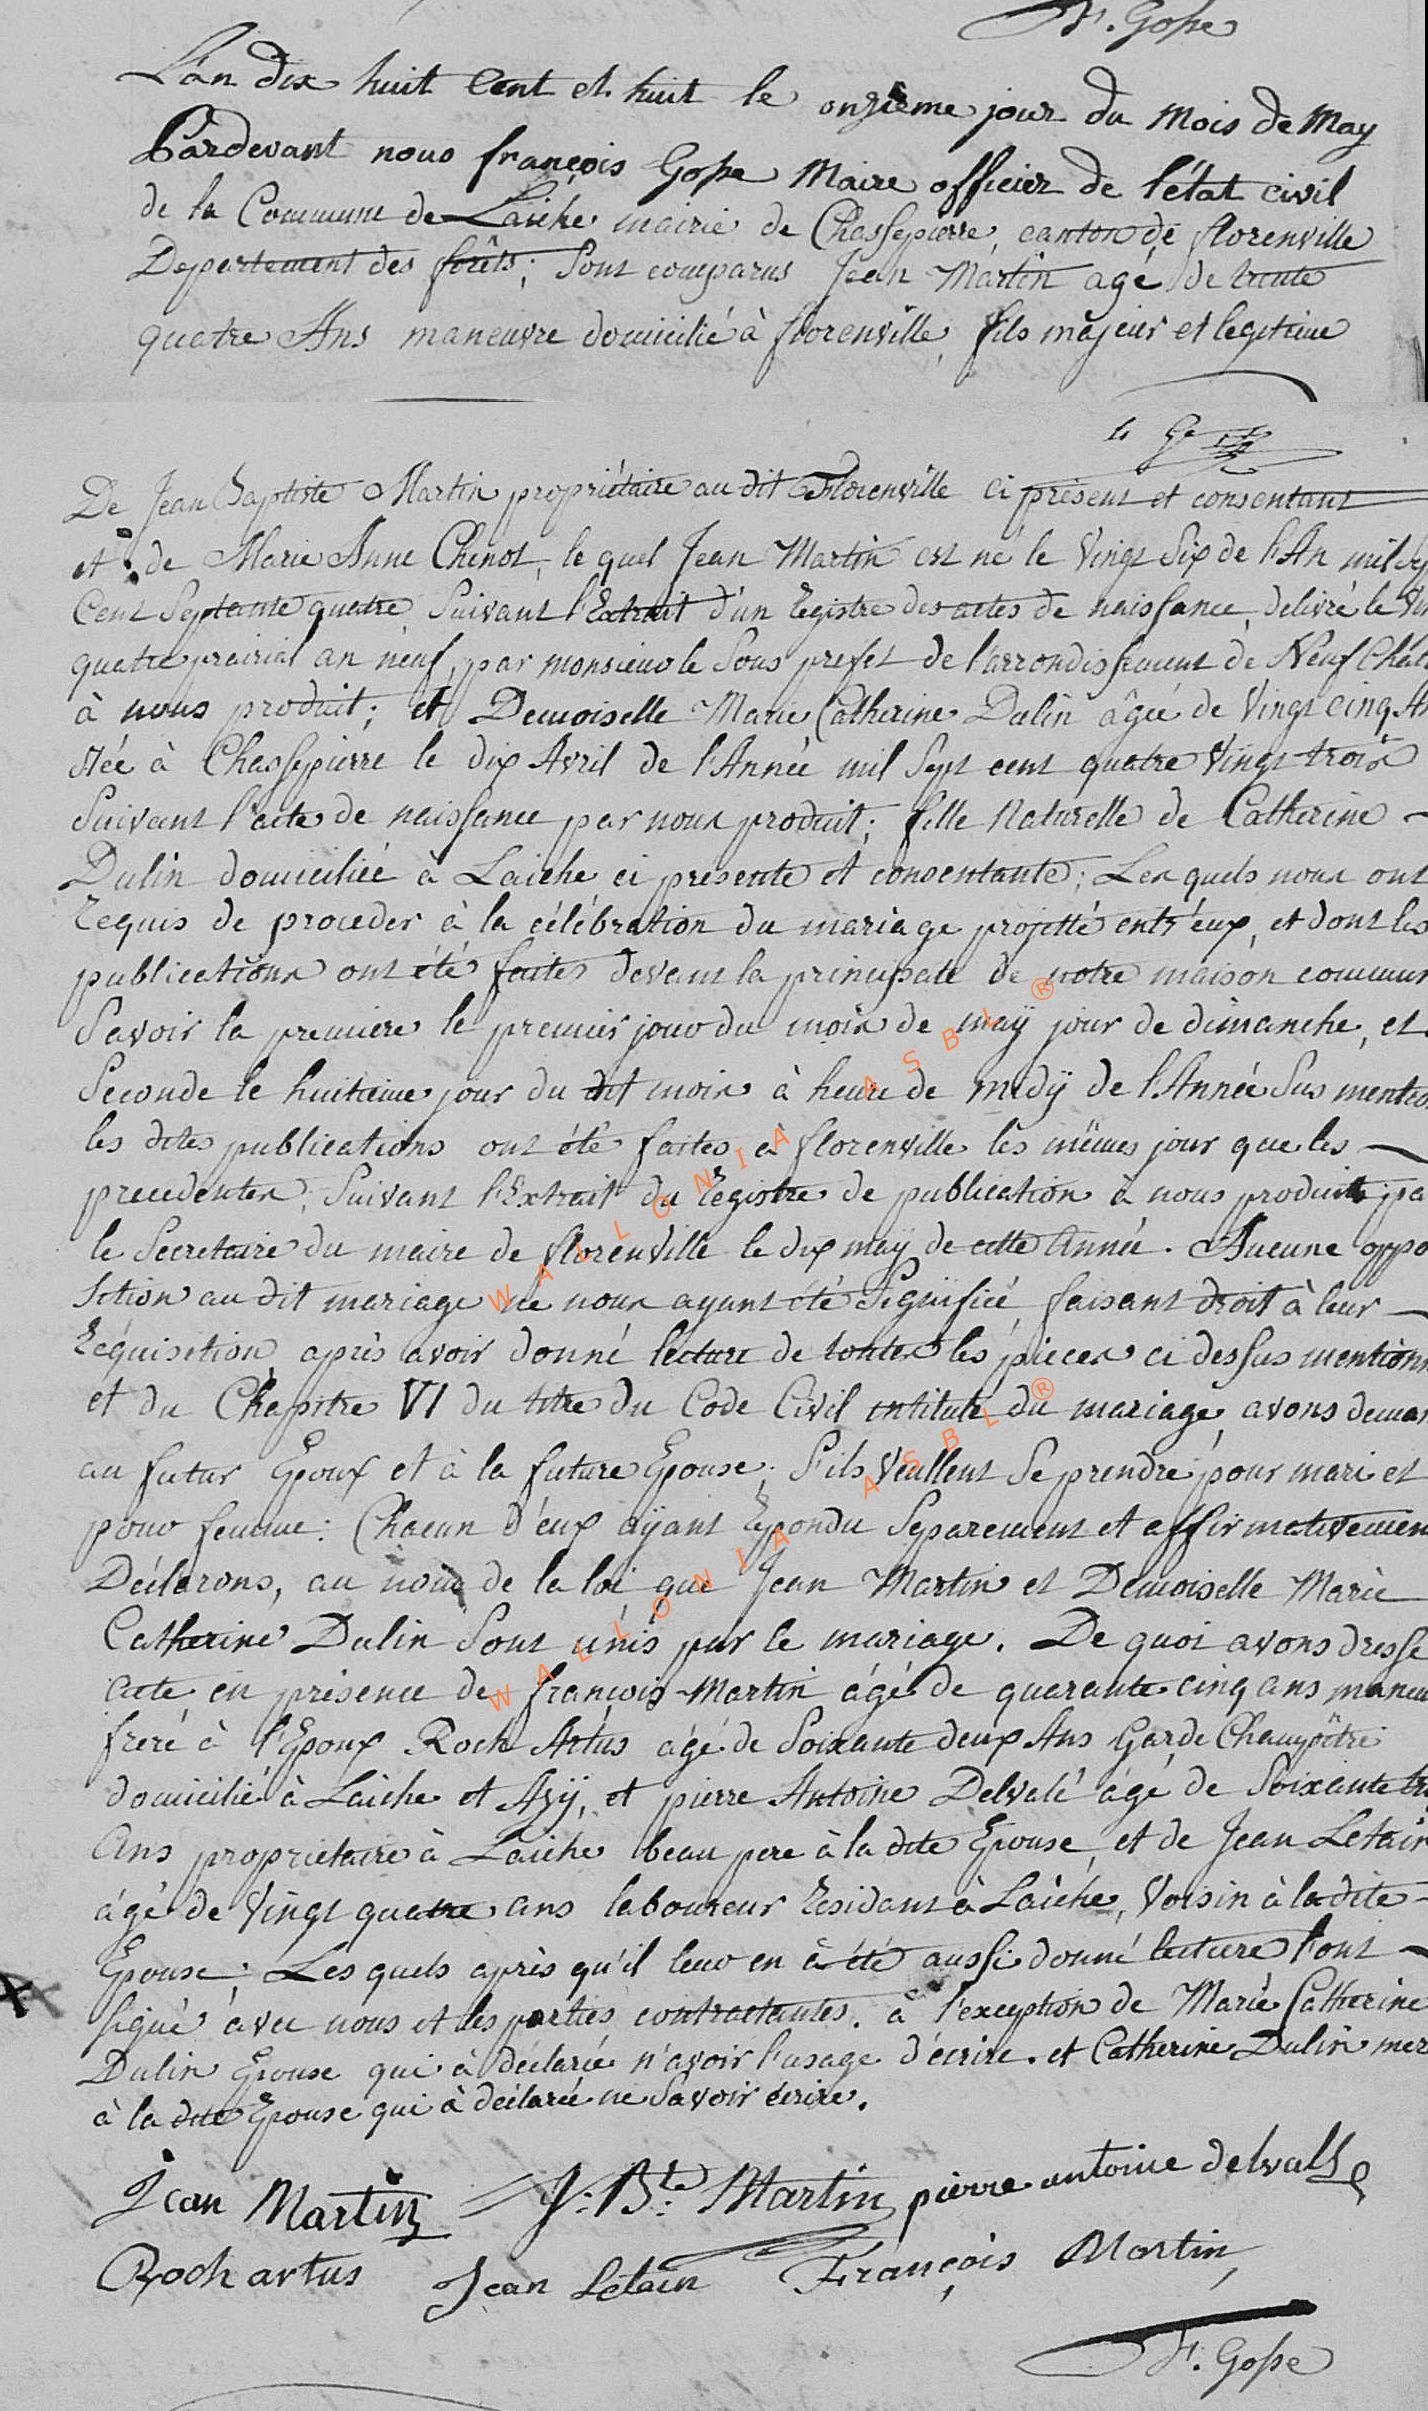 F. Gosse
L'an dix huit Cent et huit le onzième jour du Mois de May
Pardevant nous françois Gosse Maire officier de l'état civil
de la Commune de Laiche mairie de Chassepierre, canton de florenville
Departement des forêts; sont comparus Jean Martin agé de trente
quatre Ans maneuvre domicilié à florenville, fils majeur et legitime
De Jean Baptiste Martin propriétaire au dit Florenville ci présent et consentant
et de Marie Anne Chenot, le quel Jean Martin est né le Vingt Six de l'An mil Sep
Cent Septante quatre Suivant l'Extrait d'un Registre des actes de naissance, delivré le Vin
quatre prairial an neuf, par monsieur le Sous prefet de l'arrondissement de Neuf Chât
à nous produit; et Demoiselle Marie Catherine Dulin âgée de Vingt cinq An
Née à Chassepierre le dix Avril de l'Année mil Sept cent quatre Vingt trois
Suivant l'acte de naissance par nous produit; fille Naturelle de Catherine -
Dulin domiciliée à Laiche ci présente et consentante; Les quels nous ont
Requis de proceder à la célébration du mariage projetté entr'eux, et dont les
publications ont été faites devant la principale de notre maison commun
Savoir la premiere le premier jour du mois de maÿ jour de dimanche, et
Seconde le huitieme jour du dit mois à heure de midÿ de l'Année Sus mentio
les dites publications ont été faites à florenville les mêmes jour que les -
precedentes, Suivant l'Extrait du Registre de publication à nous produit pa
le Secretaire du maire de florenville le dix maÿ de cette Année. Aucune oppo
sition au dit mariage ne nous ayant été Signifiée, faisant droit à leur -
Réquisition, après avoir donné lecture de toutes les pièces ci dessus mentionn
et du Chapitre VI du titre du Code Civil intitulé du mariage, avons deman
au futur Epoux et à la future Epouse; S'ils Veullent Se prendre pour mari et
pour femme: Chacun d'eux aÿant Repondu Séparement et affirmativemen
Déclarons, au nom de la loi, que Jean Martin et Demoiselle Marie
Catherine Dulin Sont unis par le mariage. De quoi avons dressé
acte en présence de françois Martin âgé de quarante cinq ans maneu
frère à l'Epoux Roch Artus âgé de Soixante deux Ans Garde Champêtre
domicilié à Laiche et Azÿ, et pierre Antoine Delvalé âgé de Soixante tr
Ans propriétaire à Laiche beau pere à la dite Epouse, et de Jean Letain
âgé de Vingt quatre ans laboureur Résidant à Laiche, Voisin à la dite -
Epouse; Les quels après qu'il leur en à été aussi donné lecture l'ont -
signé avec nous et les parties contractantes. à l'exception de Marie Catherine
Dulin Epouse qui à déclarée n'avoir l'usage d'écrire. et Catherine Dulin mer
à la dite Epouse qui à déclarée ne Savoir écrire.
Jean Martin J: Bte: Martin pierre antoine delvalle
Roch artus Jean Letain François Martin
F. Gosse
WALLONIA ASBL ®
WALLONIA ASBL ®